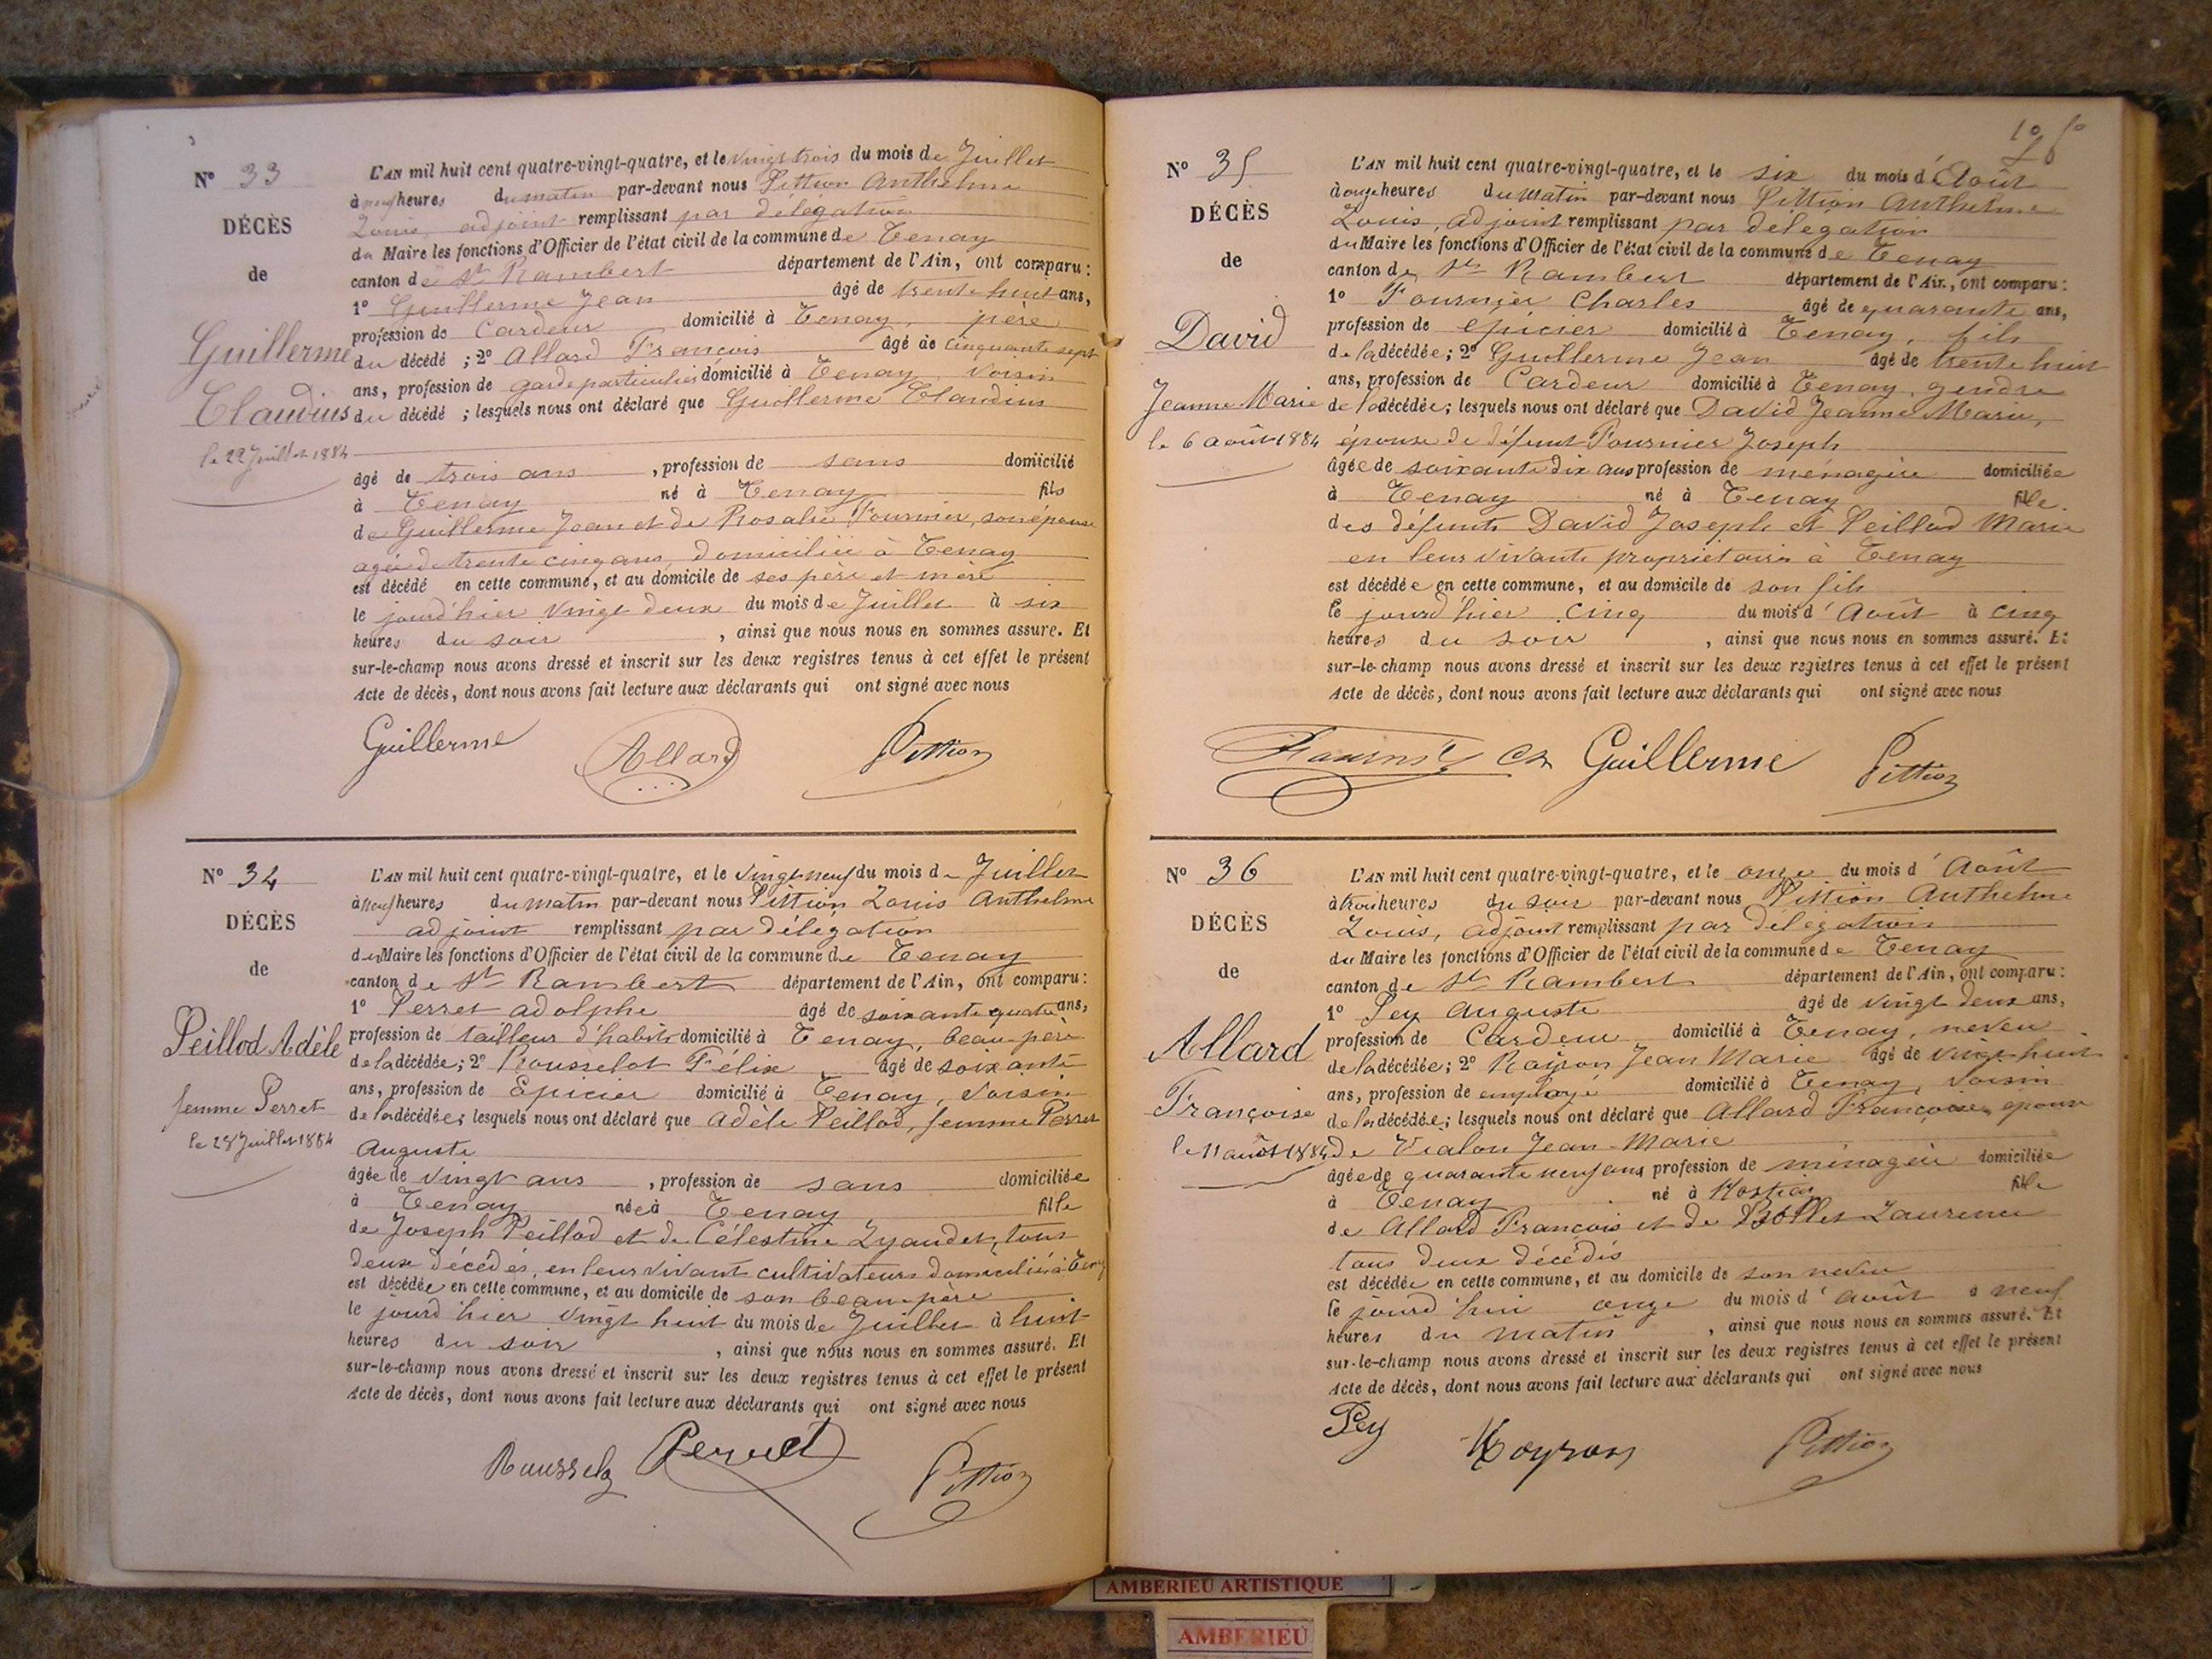 N° 33
DÉCÈS
de
Guillerme
Claudius
le 22 Juillet 1884
L'AN mil huit cent quatre-vingt-quatre, et le vingt trois du mois de Juillet
à neuf heures du matin par-devant nous Pittion Anthelme
Louis, adjoint remplissant par délégation
du Maire les fonctions d'Officier de l'état civil de la commune de Tenay
canton de St Rambert département de l'Ain, ont comparu :
1° Guillerme Jean âgé de trente huit ans,
profession de Cardeur domicilié à Tenay, père
du décédé ; 2° Allard François âgé de cinquante sept
ans, profession de garde particulier domicilié à Tenay, voisin
du décédé ; lesquels nous ont déclaré que Guillerme Claudius
âgé de trois ans , profession de sans domicilié
à Tenay né à Tenay fils
de Guillerme Jean et de Rosalie Fournier, son épouse
agée de trente cinq ans, domiciliée à Tenay
est décédé en cette commune, et au domicile de ses père et mère
le jourd'hier vingt deux du mois de Juillet à six
heures du soir , ainsi que nous nous en sommes assuré. Et
sur-le-champ nous avons dressé et inscrit sur les deux registres tenus à cet effet le présent
Acte de décès, dont nous avons fait lecture aux déclarants qui ont signé avec nous
Guillerme Allard Pittion
N° 34
DÉCÈS
de
Peillod Adèle
femme Perret
le 28 Juillet 1884
L'AN mil huit cent quatre-vingt-quatre, et le vingt neuf du mois de Juillet
à neuf heures du matin par-devant nous Pittion Louis Anthelme
adjoint remplissant par délégation
du Maire les fonctions d'Officier de l'état civil de la commune de Tenay
canton de St Rambert département de l'Ain, ont comparu :
1° Perret adolphe âgé de soixante quatre ans,
profession de tailleur d'habits domicilié à Tenay, beau-père
de la décédée ; 2° Rousselot Félix âgé de soixante
ans, profession de Epicier domicilié à Tenay, voisin
de la décédée ; lesquels nous ont déclaré que Adèle Peillod, femme Perret
Auguste
âgée de vingt ans , profession de sans domiciliée
à Tenay née à Tenay fille
de Joseph Peillod et de Célestine Lyaudet, tous
deux décédés, en leur vivant cultivateurs domiciliés à Tenay
est décédée en cette commune, et au domicile de son beau-père
le jourd'hier vingt huit du mois de Juillet à huit
heures du soir , ainsi que nous nous en sommes assuré. Et
sur-le-champ nous avons dressé et inscrit sur les deux registres tenus à cet effet le présent
Acte de décès, dont nous avons fait lecture aux déclarants qui ont signé avec nous
Perret Pittion
N° 35
DÉCÈS
de
David
Jeanne Marie
le 6 août 1884
L'AN mil huit cent quatre-vingt-quatre, et le six du mois d'Août
à onze heures du matin par-devant nous Pittion Anthelme
Louis, adjoint remplissant par délégation
du Maire les fonctions d'Officier de l'état civil de la commune de Tenay
canton de St Rambert département de l'Ain, ont comparu :
1° Fournier Charles âgé de quarante ans,
profession de épicier domicilié à Tenay, fils
de la décédée ; 2° Guillerme Jean âgé de trente huit
ans, profession de Cardeur domicilié à Tenay, gendre
de la décédée ; lesquels nous ont déclaré que David Jeanne Marie,
épouse de défunt Fournier Joseph
âgée de soixante dix ans profession de ménagère domiciliée
à Tenay né à Tenay fille
des défunts David Joseph et Peillod Marie
en leur vivants propriétaires à Tenay
est décédée en cette commune, et au domicile de son fils
le jourd'hier cinq du mois d'Août à cinq
heures du soir , ainsi que nous nous en sommes assuré. Et
sur-le-champ nous avons dressé et inscrit sur les deux registres tenus à cet effet le présent
Acte de décès, dont nous avons fait lecture aux déclarants qui ont signé avec nous
Ch Guillerme Pittion
N° 36
DÉCÈS
de
Allard
Françoise
le 11 août 1884
L'AN mil huit cent quatre-vingt-quatre, et le onze du mois d'Août
à trois heures du soir par-devant nous Pittion Anthelme
Louis, adjoint remplissant par délégation
du Maire les fonctions d'Officier de l'état civil de la commune de Tenay
canton de St Rambert département de l'Ain, ont comparu :
1° Pey Auguste âgé de vingt deux ans,
profession de Cardeur domicilié à Tenay, neveu
de la décédée ; 2° Jean Marie âgé de vingt huit
ans, profession de employé domicilié à Tenay, voisin
de la décédée ; lesquels nous ont déclaré que Allard Françoise, épouse
de Vialon Jean-Marie
âgée de quarante neuf ans, profession de ménagère domiciliée
à Tenay né à Hostias fille
de Allard François et de Laurence
tous deux décédés
est décédée en cette commune, et au domicile de son neveu
le jourd'hui onze du mois d'août à neuf
heures du matin , ainsi que nous nous en sommes assuré. Et
sur-le-champ nous avons dressé et inscrit sur les deux registres tenus à cet effet le présent
Acte de décès, dont nous avons fait lecture aux déclarants qui ont signé avec nous
Pey Pittion
AMBERIEU ARTISTIQUE
AMBERIEU